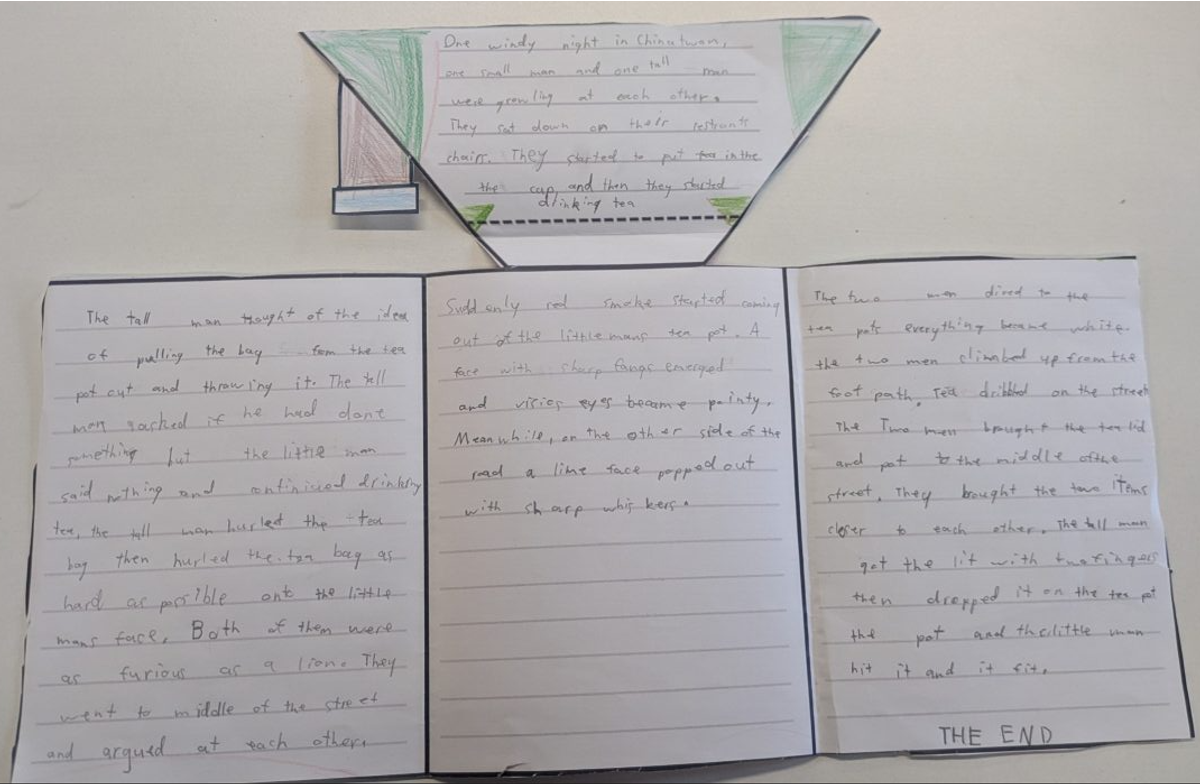 One windy night in Chinatwon,
one small man and one tall man
were growling at each other.
They sat down on their restrants
chairs. They started to put tea in the
the cup, and then they started
drinking tea
The tall man thought of the idea
of pulling the bag fom the tea
pot out and throwing it. The tall
man if he had done
something but the little man
said nothing and continiued drinking
tea, the tall man hurled the tea
bag then hurled the tea bag as
hard as possible onto the little
mans face. Both of them were
as furious as a lion. They
went to middle of the street
and argued at each other.
Suddenly red smoke started coming
out of the little mans tea pot. A
face with sharp fangs emerged
and eyes became pointy.
Meanwhile, on the other side of the
road a face popped out
with sharp whiskers.
The two men to the
tea pots everything became white.
the two men climbed up from the
foot path. Tea dribbled on the street
The Two men brought the tea lid
and pot to the middle of the
street. They brought the two items
closer to each other. The tall man
got the lit with two fingers
then dropped it on the tea pot
the pot and the little man
hit it and it fit.
THE END